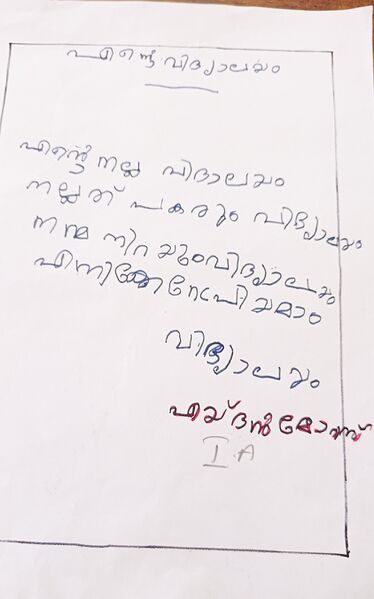 എന്റെ വിദ്യാലയം
എന്റെ നല്ല വിദാലയം
നല്ലത് പകരും വിദ്യാലയം
നന്മ നിറയുംവിദ്യാലയം
വിദ്യാലയം
എയ്ദൻ
I A